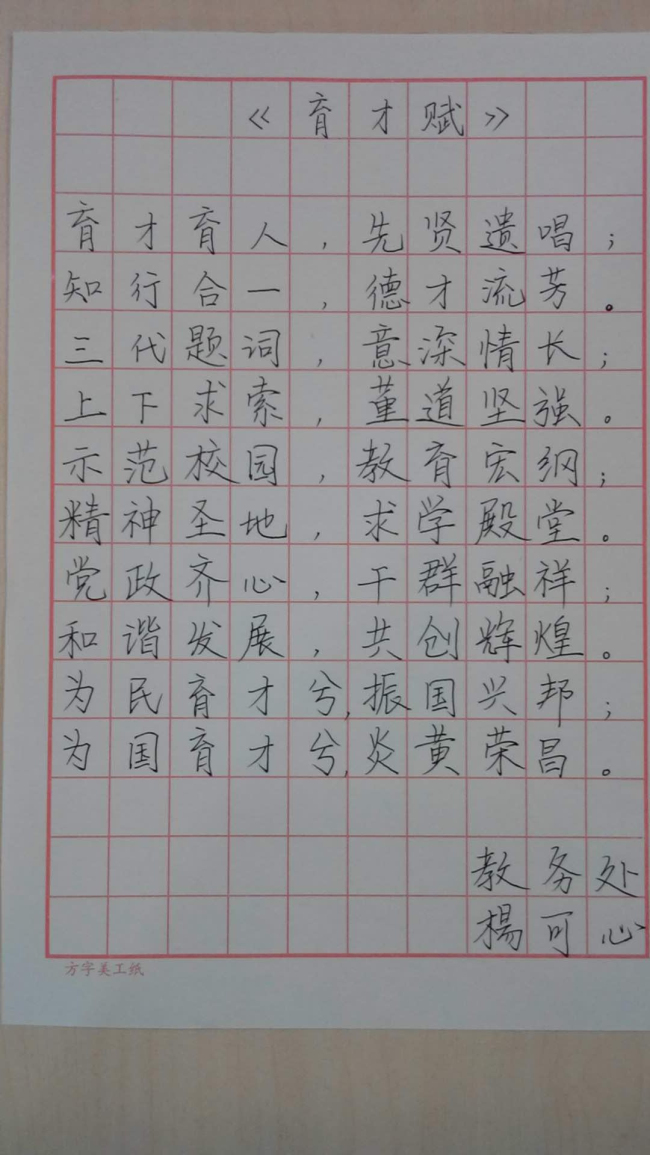 《育才赋》
育才育人，先贤遗唱；
知行合一，德才流芳。
三代题词，意深情长；
上下求索，董道坚强。
示范校园，教育宏纲；
精神圣地，求学殿堂。
党政齐心，干群融祥；
和谐发展，共创辉煌。
为民育才兮，振国兴邦；
为国育才兮，炎黄荣昌。
教务处
楊可心
方字美工纸